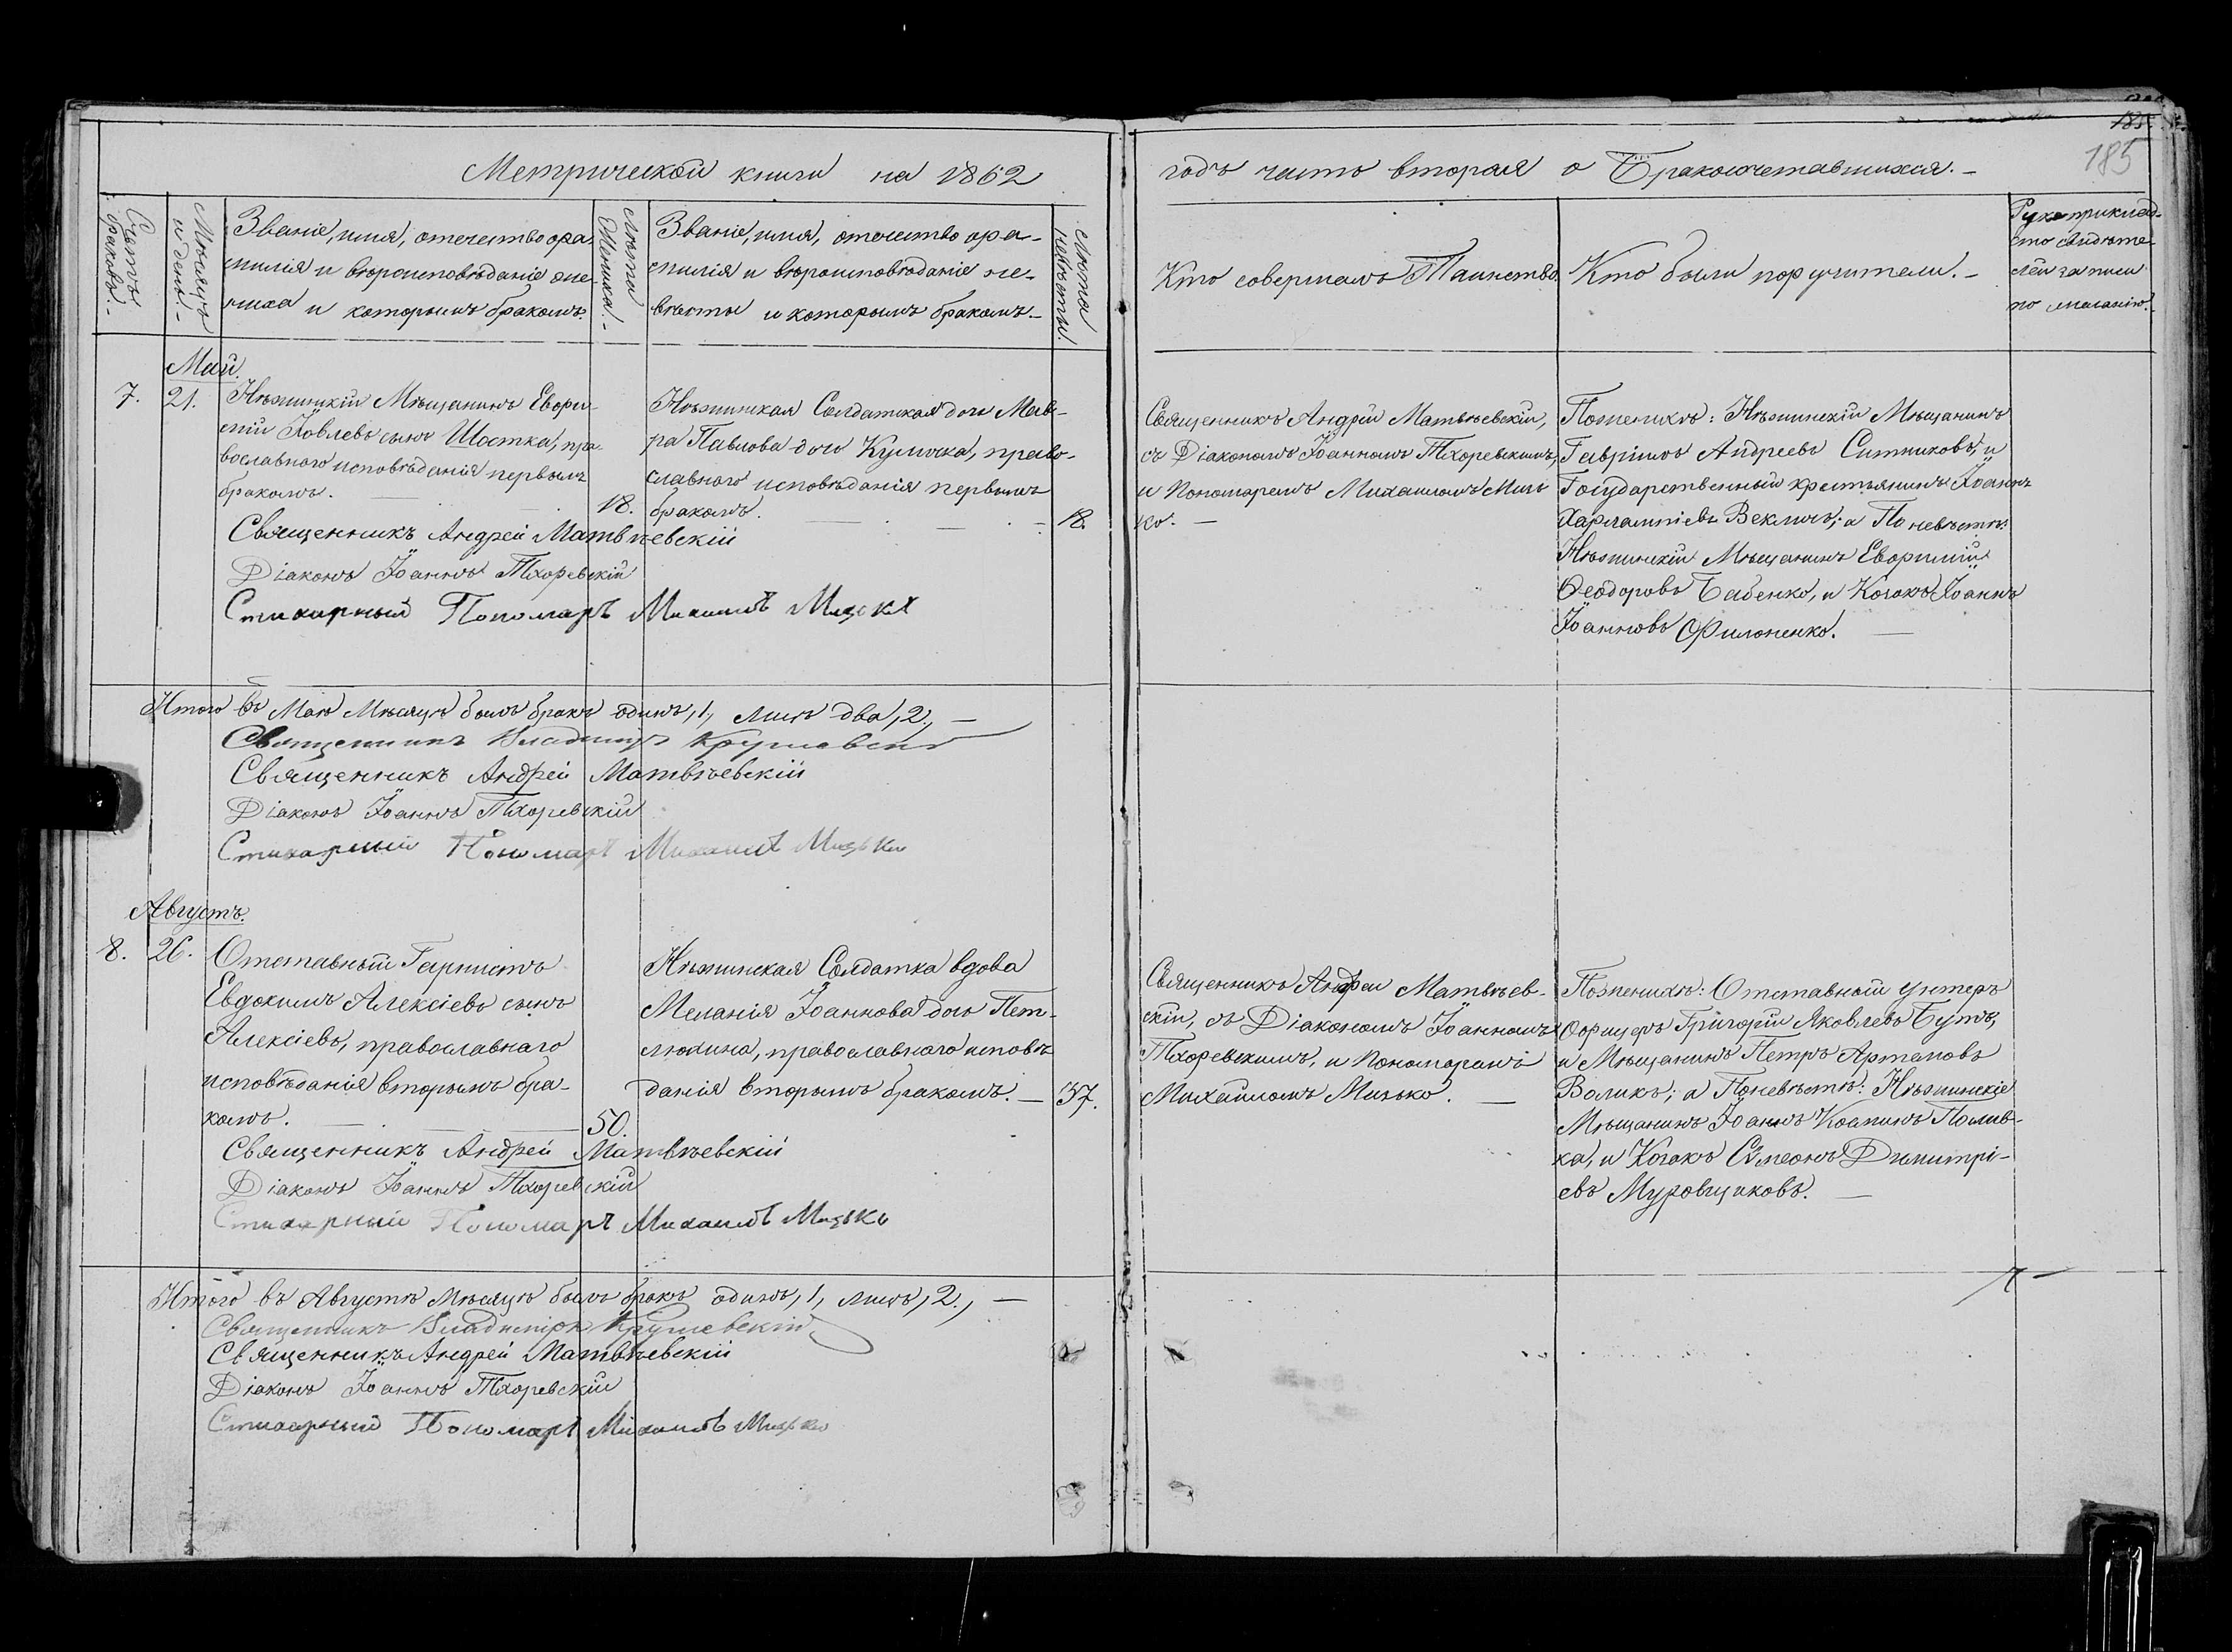 Метрической книги на 1862
годъ часть вторая о Бракосочетавшихся. –
185
185
Счетъ браковъ. –
Мѣсяцъ и день. –
Званіе, имя, отечество фа-
милія и вѣроисповѣданіе же-
ниха и которымъ бракомъ.
Лѣта Жениха. –
Званіе, имя, отечество фа-
милія и вѣроисповѣданіе не-
вѣсты и которымъ бракомъ. –
Лѣта невѣсты.
Кто совершалъ Таинство.
Кто были поручители. –
Рукоприклад-
ство свидѣте-
лей записи
по желанію.
Май.
7. 21.
Нѣжинскій Мѣщанинъ Евфи-
мій Іовлевъ сынъ Шостка, пра-
вославнаго исповѣданія первымъ
бракомъ. – 18.
Нѣжинская Солдатская дочь Мав-
ра Павлова дочь Кулычка, право-
славнаго исповѣданія первымъ
бракомъ. – 18.
Священникъ Андрей Матвѣевскій,
съ Діакономъ Іоанномъ Тхоревскимъ,
и Пономаремъ Михаиломъ Мизь
ко. –
Поженихѣ: Нѣжинскій Мѣщанинъ
Гавріилъ Андреевъ Ситниковъ, и
Государственный крестьянинъ Іоаннъ
Харлампіевъ Векличъ; а По невѣстѣ:
Нѣжинскій Мѣщанинъ Евфимій
Феодоровъ Бабенко, и Козакъ Іоаннъ
Іоанновъ Филоненко. –
Священникъ Андрей Матвѣевскій
Діаконъ Іоаннъ Тхоревскій
Стихарный Пономарь Михаилъ Мизько
Итого въ Маѣ Мѣсяцѣ былъ бракъ одинъ, 1, лицъ два, 2, –
Священникъ Владимиръ Крушевскій
Священникъ Андрей Матвѣевскій
Діаконъ Іоаннъ Тхоревскій
Стихарный Пономарь Михаилъ Мизько
Августъ.
8. 26.
Отставный Гарнистъ
Евдокимъ Алексіевъ сынъ
Алексіевъ, православнаго
исповѣданія вторымъ бра-
комъ. – 50.
Нѣжинская Солдатка вдова
Меланія Іоаннова дочь Пет-
люхина, православнаго исповѣ
данія вторымъ бракомъ. – 37.
Священникъ Андрей Матвѣев-
скій, съ Діакономъ Іоанномъ
Тхоревскимъ, и Пономаремъ
Михаиломъ Мизько. –
Поженихѣ: Отставный унтеръ
Офицеръ Григорій Яковлевъ Бутъ,
и Мѣщанинъ Петръ Артемовъ
Воликъ; а Поневѣстѣ: Нѣжинскіе
Мѣщанинъ Іоаннъ Козминъ Полив-
ка, и Козакъ Сѵмеонъ Димитрі-
евъ Муровщиковъ. –
Священникъ Андрей Матвѣевскій
Діаконъ Іоаннъ Тхоревскій
Стихарный Пономарь Михаилъ Мизько
Итого въ Августѣ Мѣсяцѣ былъ бракъ одинъ, 1, лицъ, 2, –
Священникъ Владиміръ Крушевскій
Священникъ Андрей Матвѣевскій
Діаконъ Іоаннъ Тхоревскій
Стихарный Пономарь Михаилъ Мизько